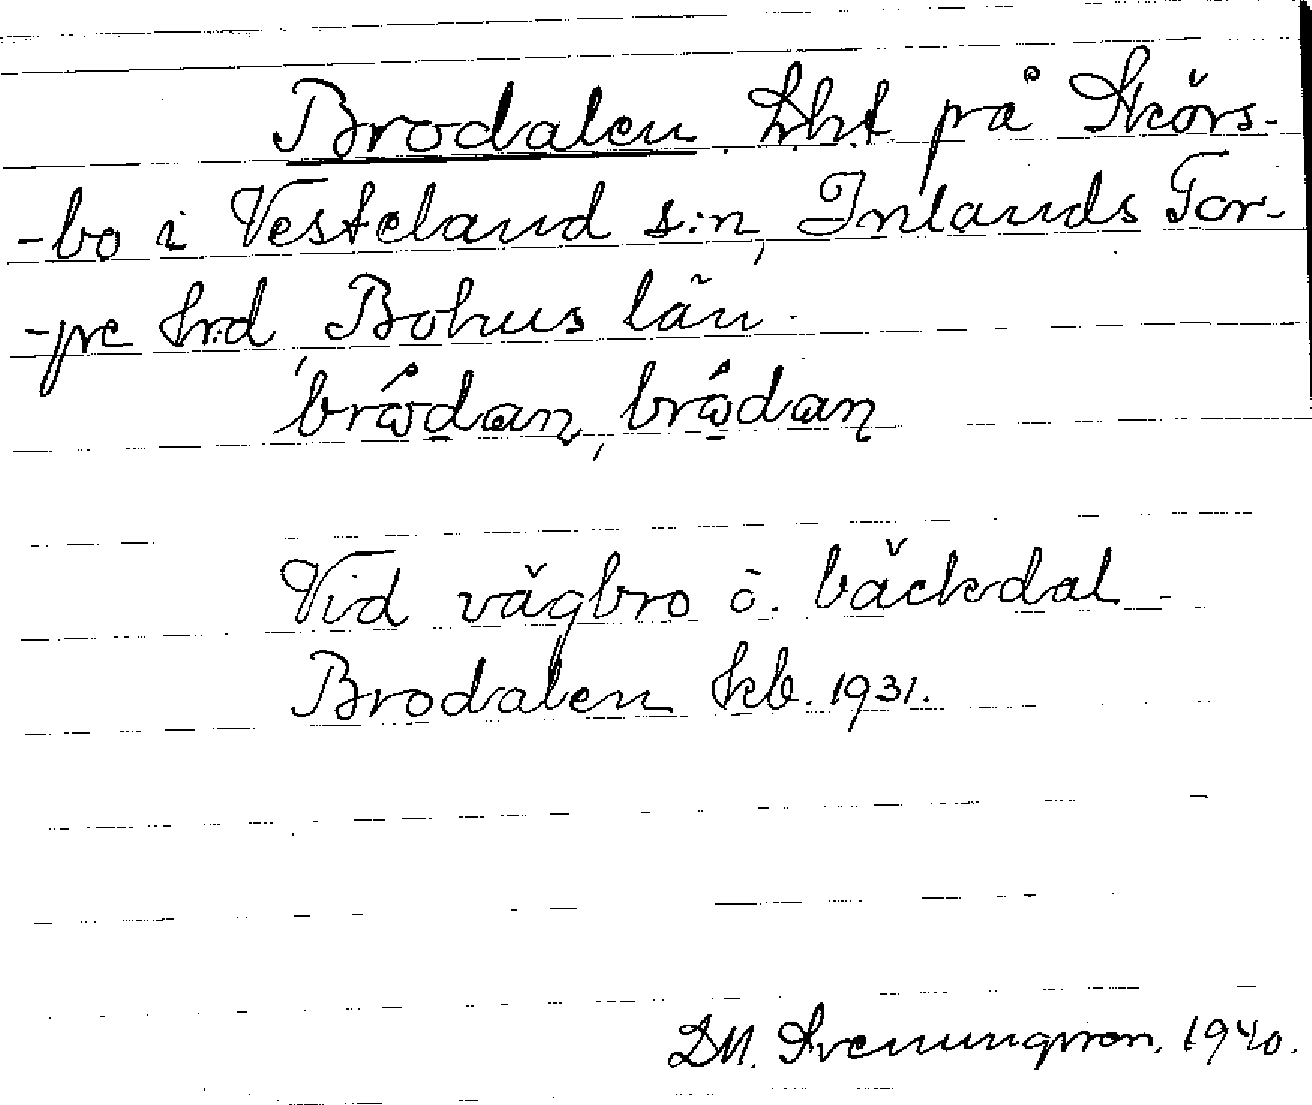 Brodalen lht på Skörs-
-bo i Vesteland s:n, Inlands Tor-
-pe hrd, Bohus län.
brôdan, brôdan
Vid vägbro ö. bäckdal.
Brodalen kb. 1931.
D.M. Svenungsson. 1940.